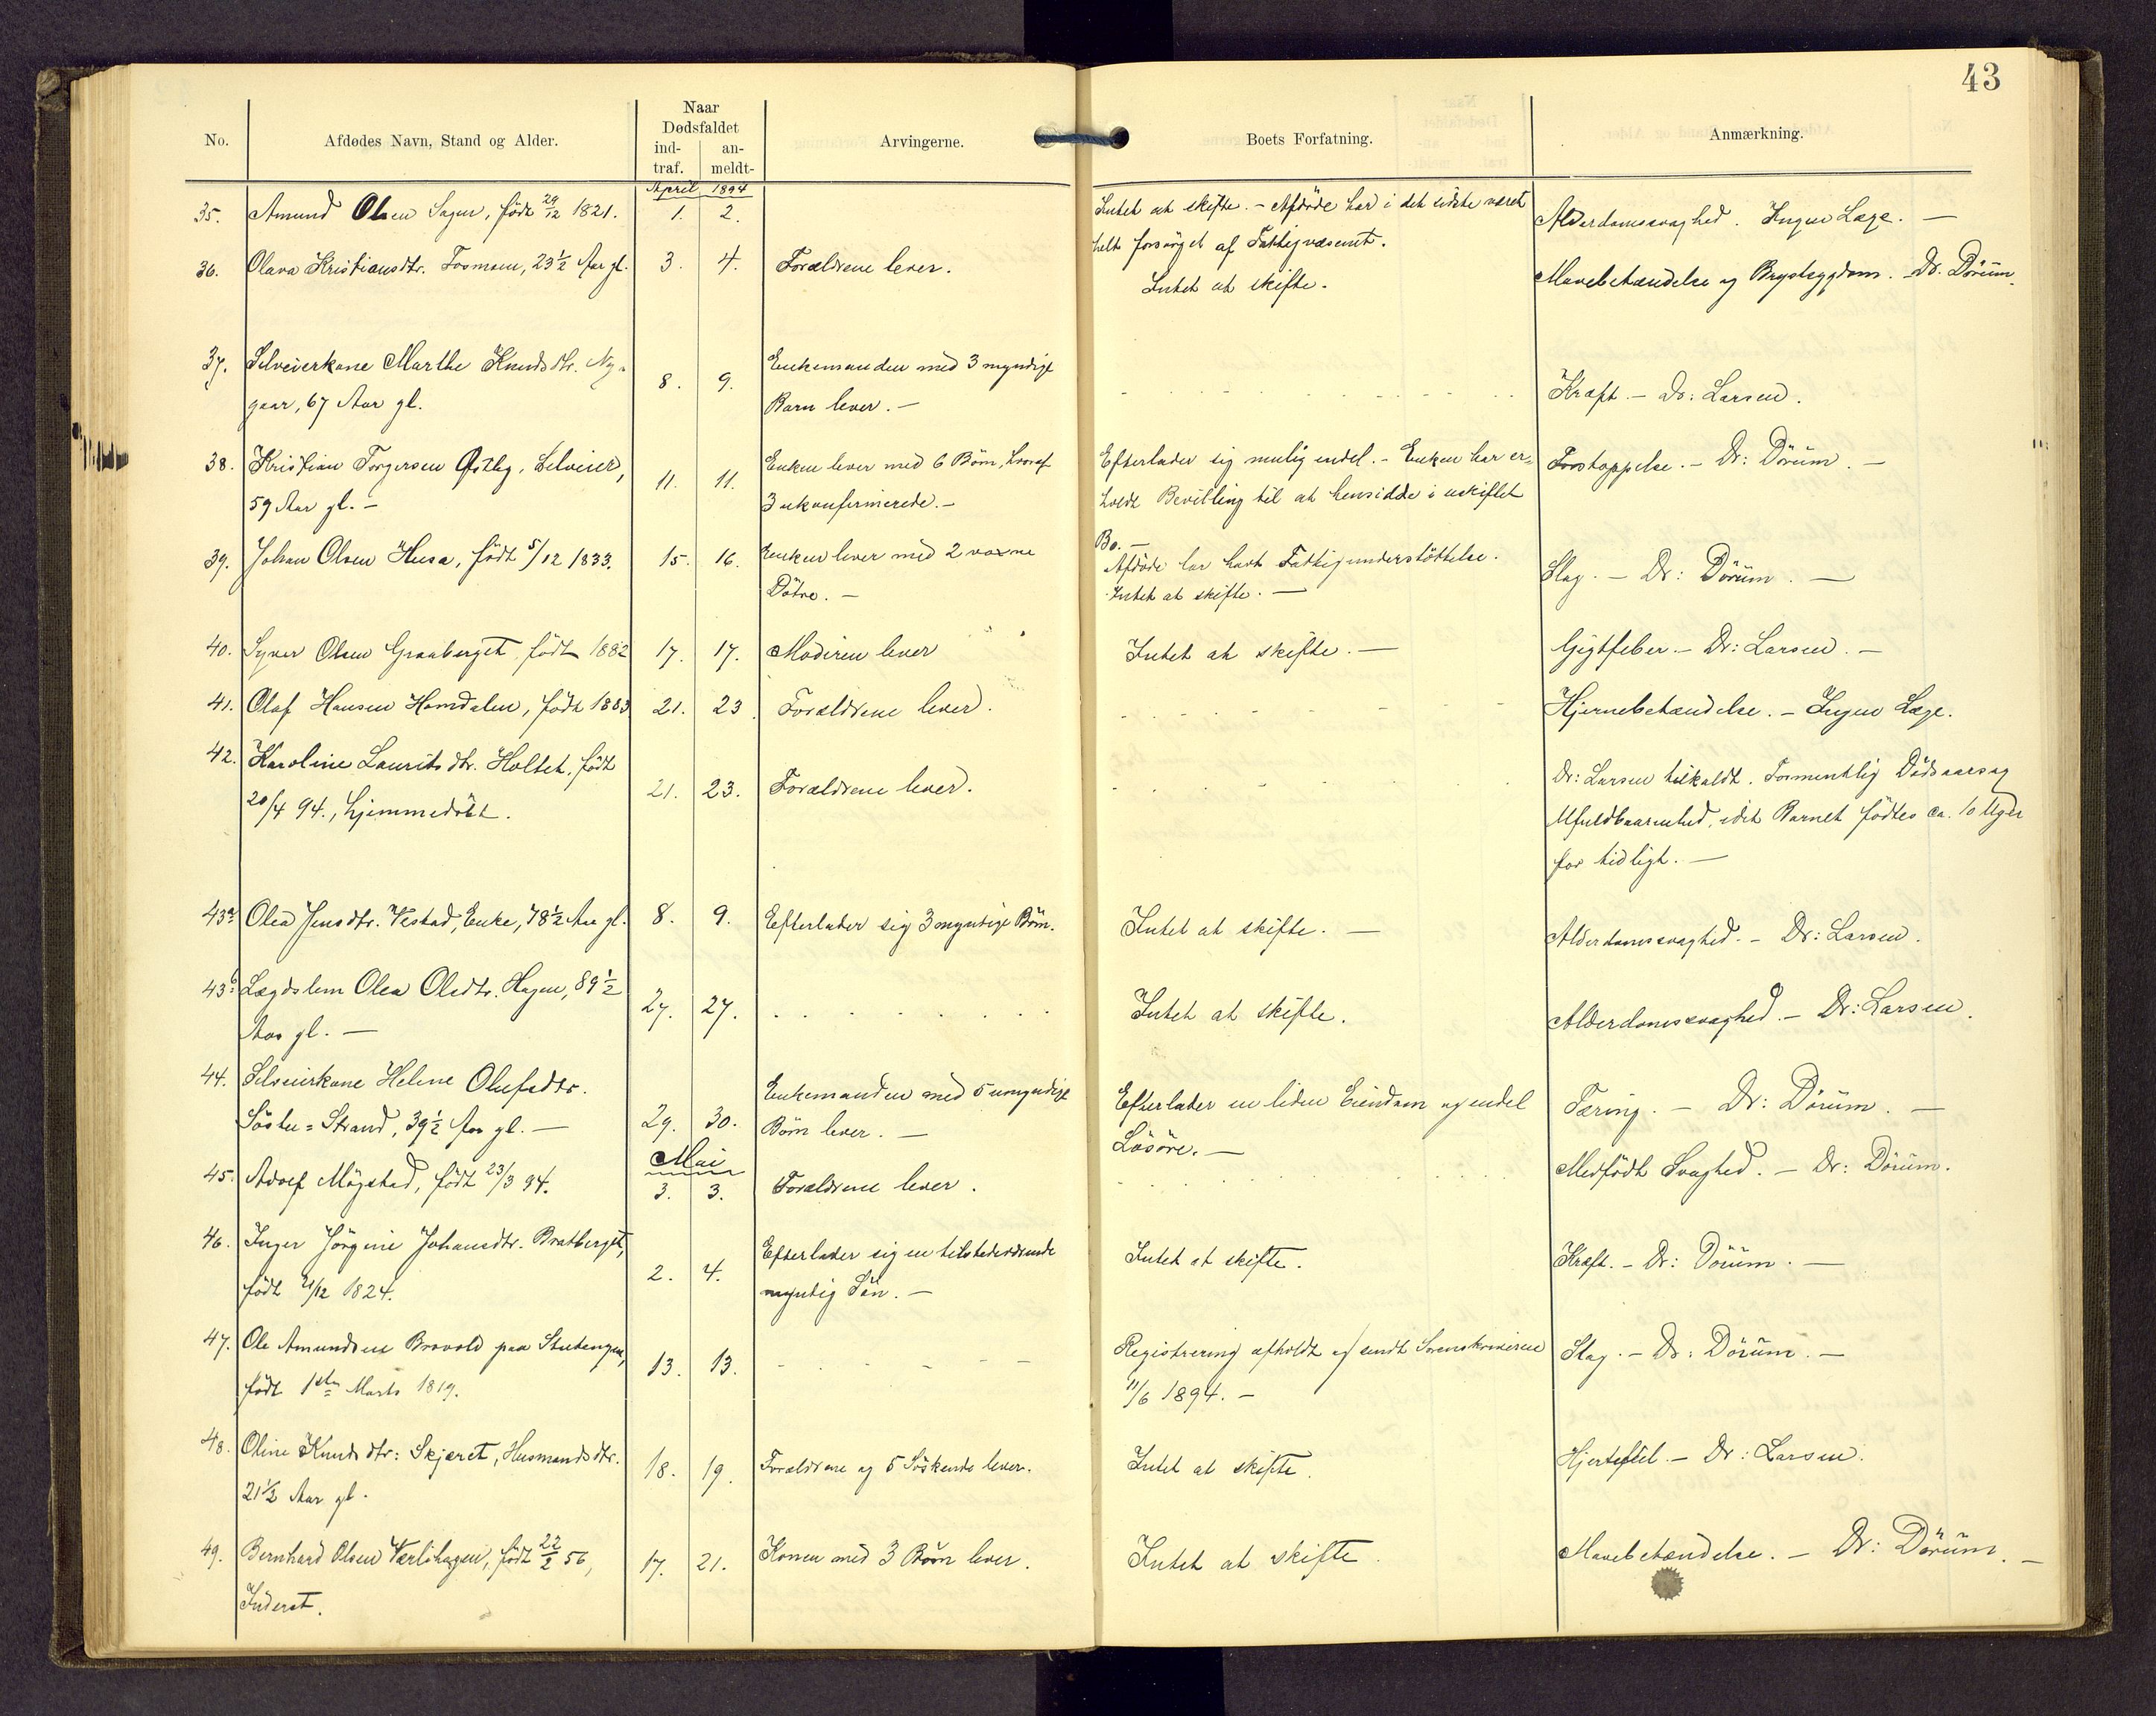 43
No.
Afdødes Navn, Stand og Alder.
Naar
Dødsfaldet
ind-
traf.
an-
meldt-
Arvingerne.
Boets Forfatning.
Anmærkning.
April 1894
35. Amund Olsen Sagen, födt 29/12 1821. 1. 2. Intet at skifte. - Afdöde har i det sidste været Alderdomssvaghed. Ingen Læge. -
helt forsörget af Fattigvæsenet.
36. Olava Kristiansdtr. Fosmoen, 23½ Aar gl. 3. 4. Forældrene lever. Intet at skifte. Mavebetændelse og Brystsygdom. - Dr. Dörum.
37. Selveierkone Marthe Knudsdtr. Ny-
gaar, 67 Aar gl. 8. 9. Enkemanden med 3 myndige
Barn lever. - Kræft. - Dr: Larsen.
38. Kristian Torgersen Østby, Selveier,
59 Aar gl. - 11. 11. Enken lever med 6 Börn, hvoraf
3 ukonfirmerede. - Efterlader sig mulig endel. - Enken har er-
holdt Bevilling til at hensidde i uskiftet
Bo. - Forstoppelse. - Dr: Dörum. -
39. Johan Olsen Husa, födt 5/12 1833. 15. 16. Enken lever med 2 voxne
Dötre. - Afdöde har havt Fattigunderstöttelse.
Intet at skifte. - Slag. - Dr: Dörum. -
40. Syver Olsen Graaberget, födt 1882 17. 17. Moderen lever Intet at skifte. - Gigtfeber. - Dr: Larsen. -
41. Olaf Hansen Homdalen, födt 1883 21. 23 Forældrene lever. Hjernebetændelse. - Ingen Læge.
42. Karoline Lauritsdtr. Holtet, födt
20/4 94., hjemmedöbt. 21. 23. Forældrene lever. Dr: Larsen tilkaldt. Formentlig Dödsaarsag
Ufuldbaarenhed, idet Barnet födtes ca. 10 Uger
for tidligt. -
43a Olea Jensdtr. Vestad, Enke, 78½ Aar gl. 8. 9. Efterlader sig 3 myndige Börn. Intet at skifte. - Alderdomssvaghed. - Dr: Larsen.
43b: Lægdslem Olea Olsdtr. Hagen, 89½
Aar gl. - 27. 27. Intet at skifte. Alderdomssvaghed. - Dr: Larsen.
44. Selveierkone Helene Olufsdtr.
Söstu = Strand, 39½ Aar gl. - 29. 30. Enkemanden med 5 umyndige
Börn lever. - Efterlader en liden Eiendom og endel
Lösöre. - Tæring. - Dr: Dörum. -
Mai
45. Adolf Mögstad, födt 23/3 94. 3. 3. Forældrene lever. Medfödt Svaghed. - Dr: Dörum.
46. Inger Jörgine Johansdtr. Bratberget,
födt 21/12 1824. 2. 4. Efterlader sig en tilstedeværende
myndig Sön. - Intet at skifte. Kræft. - Dr: Dörum. -
47. Ole Amundsen Brovold paa Stutengen,
födt 1ste Marts 1819. 13. 13. Registrering afholdt og sendt Sorenskriveren
11/6 1894. - Slag. - Dr: Dörum. -
48. Oline Knudsdtr: Skjæret, Husmandsdtr.
21½ Aar gl. 18. 19. Forældrene og 5 Söskende lever. Intet at skifte. Hjertefeil. - Dr: Larsen.
49. Bernhard Olsen Værlihagen, födt 22/2 56,
Inderst. 17. 21. Konen med 3 Börn lever. Intet at skifte. Mavebetændelse. - Dr: Dörum. -